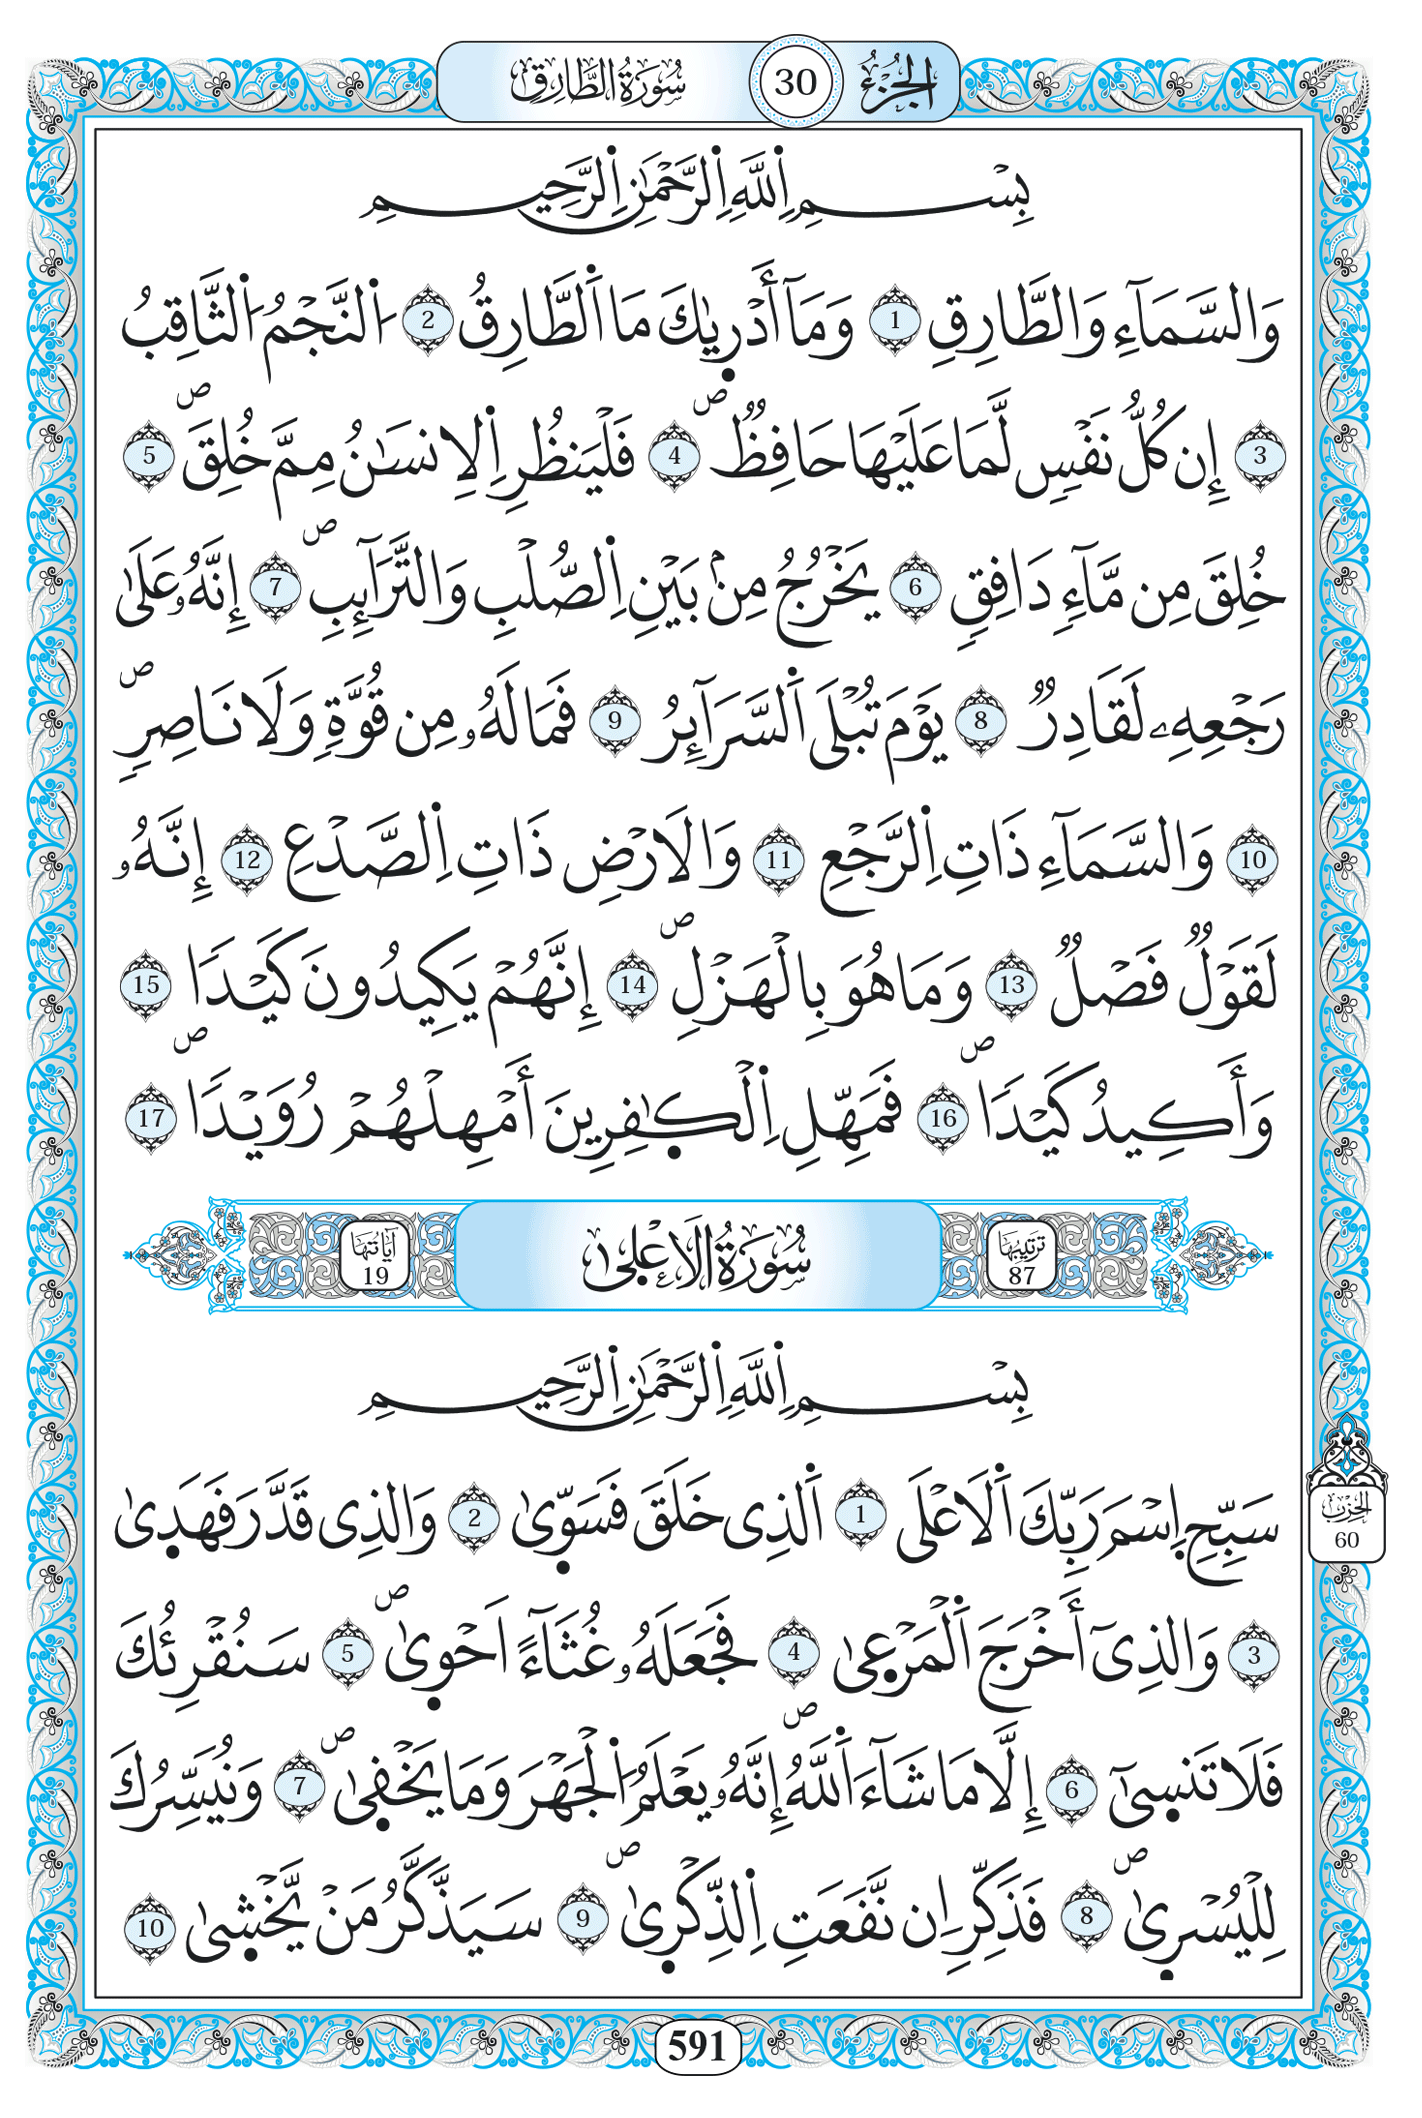 الجزء 30 سورة الطارق
بِسْمِ اِللَّهِ اِلرَّحْمَٰنِ اِلرَّحِيمِ
وَالسَّمَآءِ وَالطَّارِقِ 1 وَمَآ أَدْر۪يٰكَ مَا اَلطَّارِقُ 2 اَ۬لنَّجْمُ اُ۬لثَّاقِبُ
3 إِن كُلُّ نَفْسٖ لَّمَا عَلَيْهَا حَافِظٞ ص 4 فَلْيَنظُرِ اِلِانسَٰنُ مِمَّ خُلِقَ ص 5
خُلِقَ مِن مَّآءٖ دَافِقٖ 6 يَخْرُجُ مِنۢ بَيْنِ اِلصُّلْبِ وَالتَّرَآئِبِ ص 7 إِنَّهُۥ عَلَىٰ
رَجْعِهِۦ لَقَادِرٞ 8 يَوْمَ تُبْلَى اَلسَّرَآئِرُ 9 فَمَا لَهُۥ مِن قُوَّةٖ وَلَا نَاصِرٖ ص
10 وَالسَّمَآءِ ذَاتِ اِلرَّجْعِ 11 وَالَارْضِ ذَاتِ اِلصَّدْعِ 12 إِنَّهُۥ
لَقَوْلٞ فَصْلٞ 13 وَمَا هُوَ بِالْهَزْلِ ص 14 إِنَّهُمْ يَكِيدُونَ كَيْدٗا 15
وَأَكِيدُ كَيْدٗا ص 16 فَمَهِّلِ اِلْكٰ۪فِرِينَ أَمْهِلْهُمْ رُوَيْدٗا ص 17
ترتيبها 87 سورة الاعلى آياتها 19
بِسْمِ اِللَّهِ اِلرَّحْمَٰنِ اِلرَّحِيمِ
سَبِّحِ اِسْمَ رَبِّكَ اَلَاعْلَى 1 اَ۬لذِى خَلَقَ فَسَوّ۪ىٰ 2 وَالذِى قَدَّرَ فَهَد۪ىٰ
3 وَالذِىٓ أَخْرَجَ اَلْمَرْع۪ىٰ 4 فَجَعَلَهُۥ غُثَآءً اَحْو۪ىٰ ص 5 سَنُقْرِئُكَ
فَلَا تَنس۪ىٰٓ 6 إِلَّا مَا شَآءَ اَللَّهُ ص إِنَّهُۥ يَعْلَمُ اُ۬لْجَهْرَ وَمَا يَخْف۪ىٰ ص 7 وَنُيَسِّرُكَ
لِلْيُسْر۪ىٰ ص 8 فَذَكِّرِ اِن نَّفَعَتِ اِلذِّكْر۪ىٰ ص 9 سَيَذَّكَّرُ مَنْ يَّخْش۪ىٰ 10
الحزب 60
591